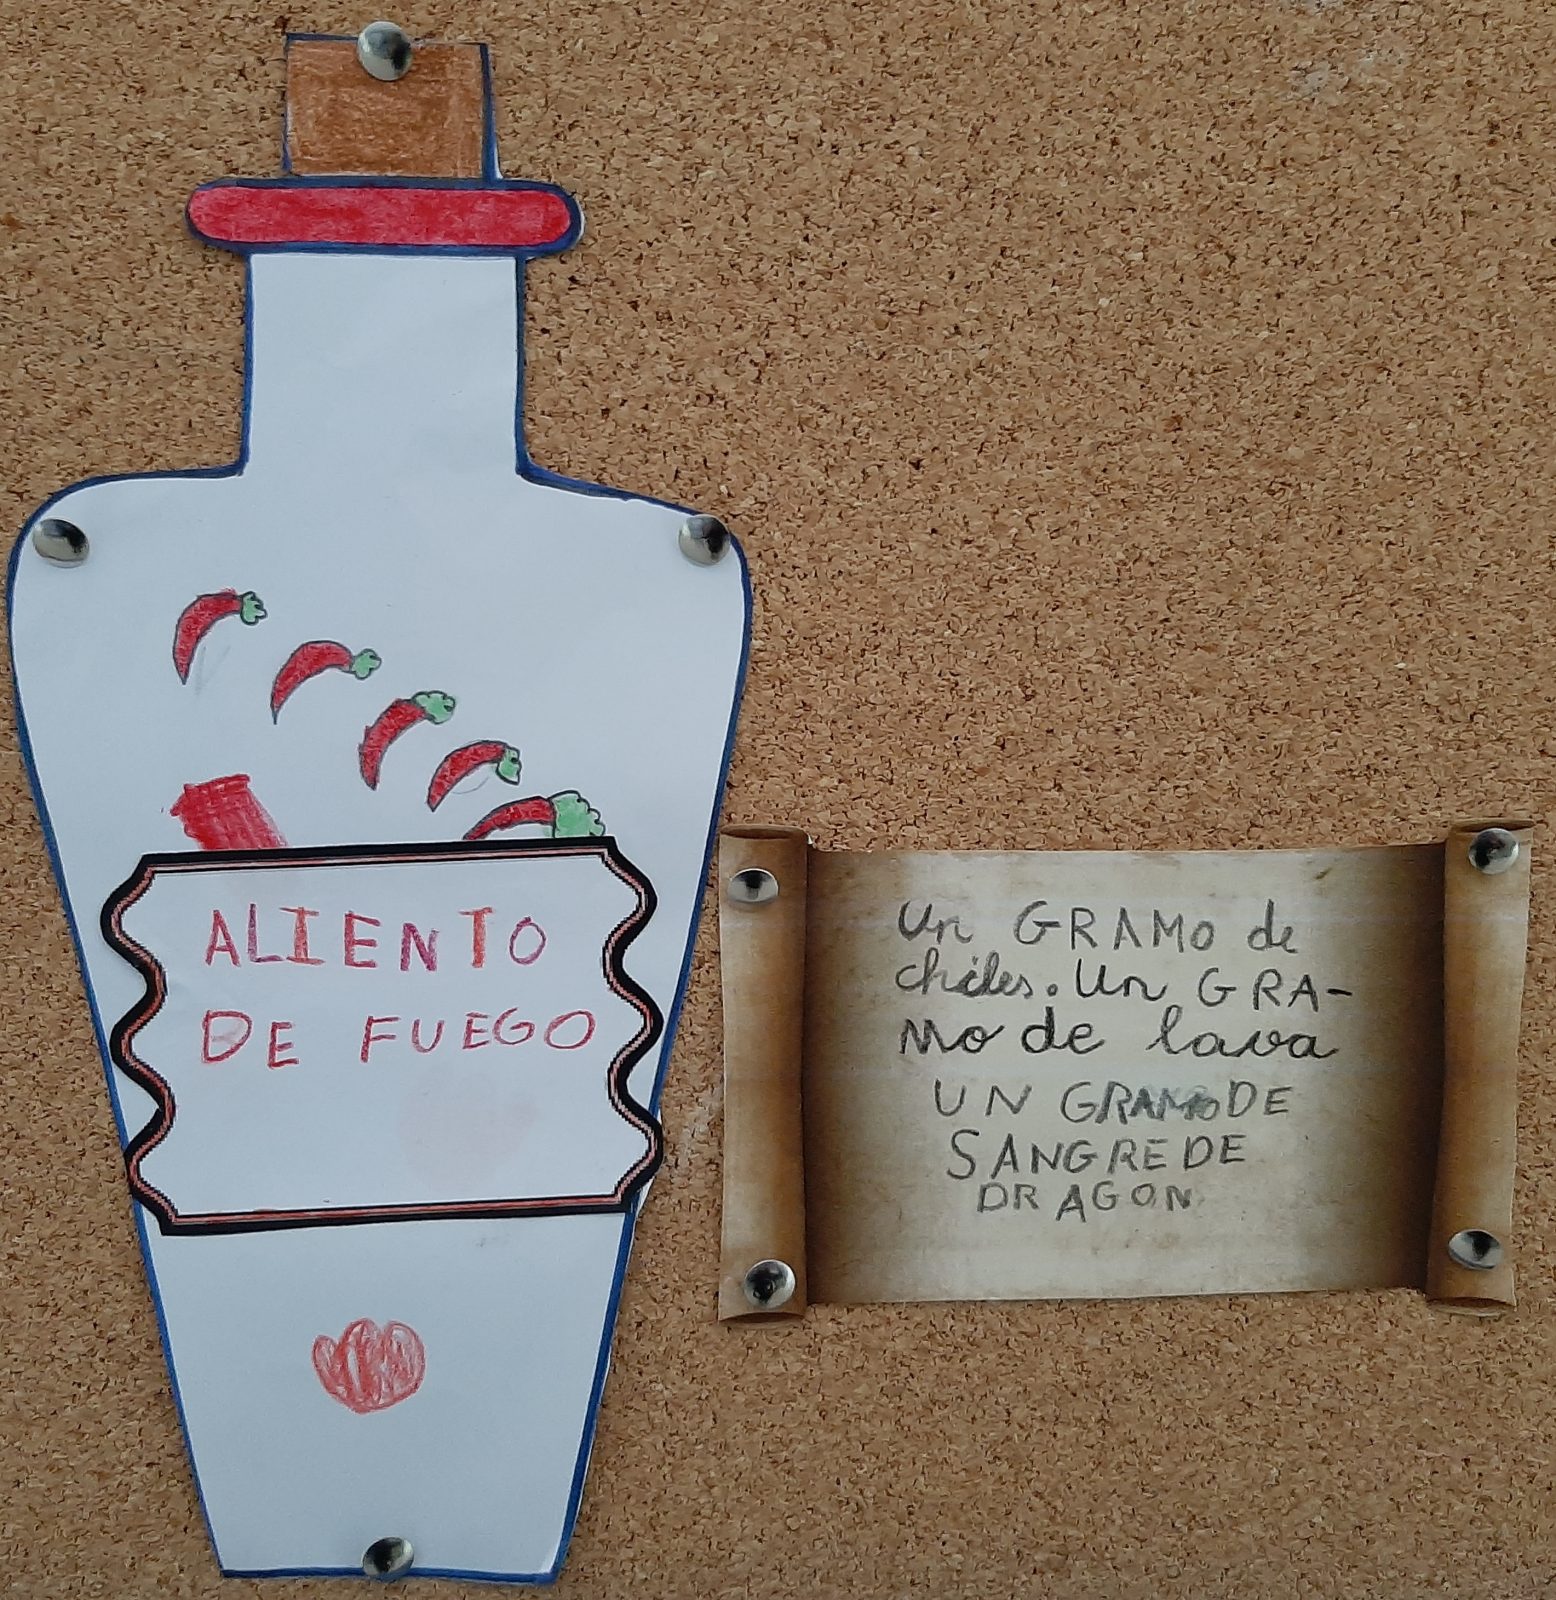 ALIENTO
DE FUEGO
Un GRAMO de
chiles. Un GRA-
MO de lava
UN GRAMO DE
SANGRE DE
DRAGON